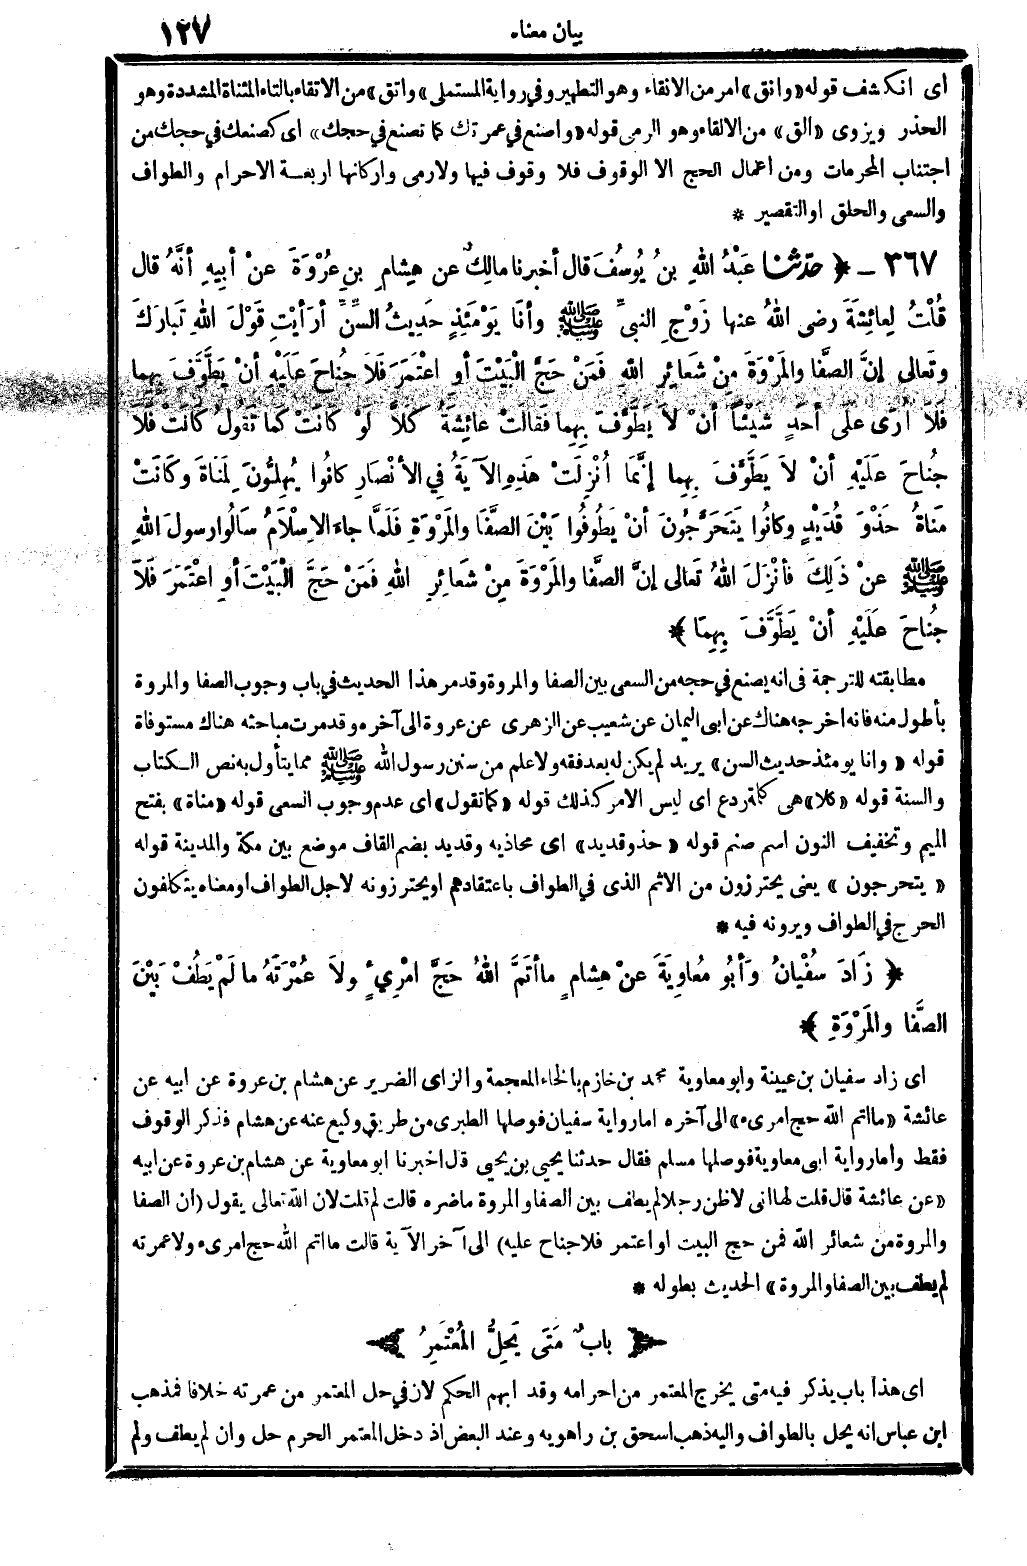 بيان معناه ١٢٧
اى انكشف قوله «وانق» امر من الانقاء وهو التطهير وفي رواية المستملى «واتق» من الاتقاء بالتاء المثناة المشددة وهو
الحذر ويروى «الق» من الالقاء وهو الرمى قوله «واصنع في عمرتك كما تصنع في حجك» اى كصنعك في حجك من
اجتناب المحرمات ومن اعمال الحج الا الوقوف فلا وقوف فيها ولا رمى واركانها اربعة الاحرام والطواف
والسعى والحلق او التقصير *
٣٦٧ - ﴿ حدثنا عَبْدُ اللهِ بنُ يُوسُفَ قال أخبرنا مالِكٌ عن هِشامِ بنِ عُرْوَةَ عنْ أبِيهِ أنَّهُ قال
قُلْتُ لِعائِشَةَ رضى اللهُ عنها زَوْجِ النبىِّ ﷺ وأنَا يَوْمَئِذٍ حَدِيثُ السنِّ أرَأيْتِ قَوْلَ اللهِ تَبارَكَ
وتَعالى إنَّ الصَّفا والمَرْوَةَ مِنْ شَعائِرِ اللهِ فَمَنْ حَجَّ الْبَيْتَ أوِ اعْتَمَرَ فَلاَ جُناحَ عَلَيْهِ أنْ يَطَّوَّفَ بِهِما
فَلاَ أُرَى عَلَى أحَدٍ شَيْئًا أنْ لاَ يَطَّوَّفَ بِهِما فَقالَتْ عائِشَةُ كَلاَّ لَوْ كانَتْ كَما تَقُولُ كانَتْ فَلاَ
جُناحَ عَلَيْهِ أنْ لاَ يَطَّوَّفَ بِهِما إنَّمَا أُنْزِلَتْ هَذِهِ الآيَةُ فِي الأنْصَارِ كانُوا يُهِلُّونَ لِمَناةَ وكَانَتْ
مَناةُ حَذْوَ قُدَيْدٍ وكانُوا يَتَحَرَّجُونَ أنْ يَطُوفُوا بَيْنَ الصَّفَا والمَرْوَةِ فَلَمَّا جاءَ الاِسْلاَمُ سَألُوا رسولَ اللهِ
ﷺ عنْ ذَلِكَ فَأنْزَلَ اللهُ تَعالى إنَّ الصَّفا والمَرْوَةَ مِنْ شَعائِرِ اللهِ فَمَنْ حَجَّ الْبَيْتَ أوِ اعْتَمَرَ فَلاَ
جُناحَ عَلَيْهِ أنْ يَطَّوَّفَ بِهِمَا ﴾*
مطابقته للترجمة فى انه يصنع في حجه من السعى بين الصفا والمروة وقد مر هذا الحديث في باب وجوب الصفا والمروة
بأطول منه فانه اخرجه هناك عن ابى اليمان عن شعيب عن الزهرى عن عروة الى آخره وقد مرت مباحثه هناك مستوفاة
قوله «وانا يومئذ حديث السن» يريد لم يكن له بعد فقه ولا علم من سنن رسول الله ﷺ مما يتأول به نص الكتاب
والسنة قوله «كلا» هى كلمة ردع اى ليس الامر كذلك قوله «كما تقول» اى عدم وجوب السعى قوله «مناة» بفتح
الميم وتخفيف النون اسم صنم قوله «حذو قديد» اى محاذيه وقديد بضم القاف موضع بين مكة والمدينة قوله
«يتحرجون» يعنى يحترزون من الاثم الذى في الطواف باعتقادهم او يحترزونه لاجل الطواف او معناه يتكلفون
الحرج في الطواف ويرونه فيه *
﴿ زَادَ سُفْيانُ وَأبُو مُعاوِيَةَ عنْ هِشامٍ ما أتَمَّ اللهُ حَجَّ امْرِيءٍ ولاَ عُمْرَتَهُ ما لَمْ يَطُفْ بَيْنَ
الصَّفا والمَرْوَةِ ﴾*
اى زاد سفيان بن عيينة وابو معاوية محمد بن خازم بالخاء المعجمة والزاى الضرير عن هشام بن عروة عن ابيه عن
عائشة «ما اتم الله حج امرىء» الى آخره اما رواية سفيان فوصلها الطبرى من طريق وكيع عنه عن هشام فذكر الوقوف
فقط وأما رواية ابى معاوية فوصلها مسلم فقال حدثنا يحيى بن يحيى قال اخبرنا ابو معاوية عن هشام بن عروة عن ابيه
«عن عائشة قال قلت لها انى لاظن رجلا لم يطف بين الصفا والمروة ماضره قالت لم قلت لان الله تعالى يقول (أن الصفا
والمروة من شعائر الله فمن حج البيت او اعتمر فلا جناح عليه) الى آخر الآية قالت ما اتم الله حج امرىء ولا عمرته
لم يطف بين الصفا والمروة» الحديث بطوله *
﴿ بابٌ مَتَى يَحِلُّ المُعْتَمِرُ ﴾
اى هذا باب يذكر فيه متى يخرج المعتمر من احرامه وقد ابهم الحكم لان في حل المعتمر من عمرته خلافا فمذهب
ابن عباس انه يحل بالطواف واليه ذهب اسحق بن راهويه وعند البعض اذ دخل المعتمر الحرم حل وان لم يطف ولم